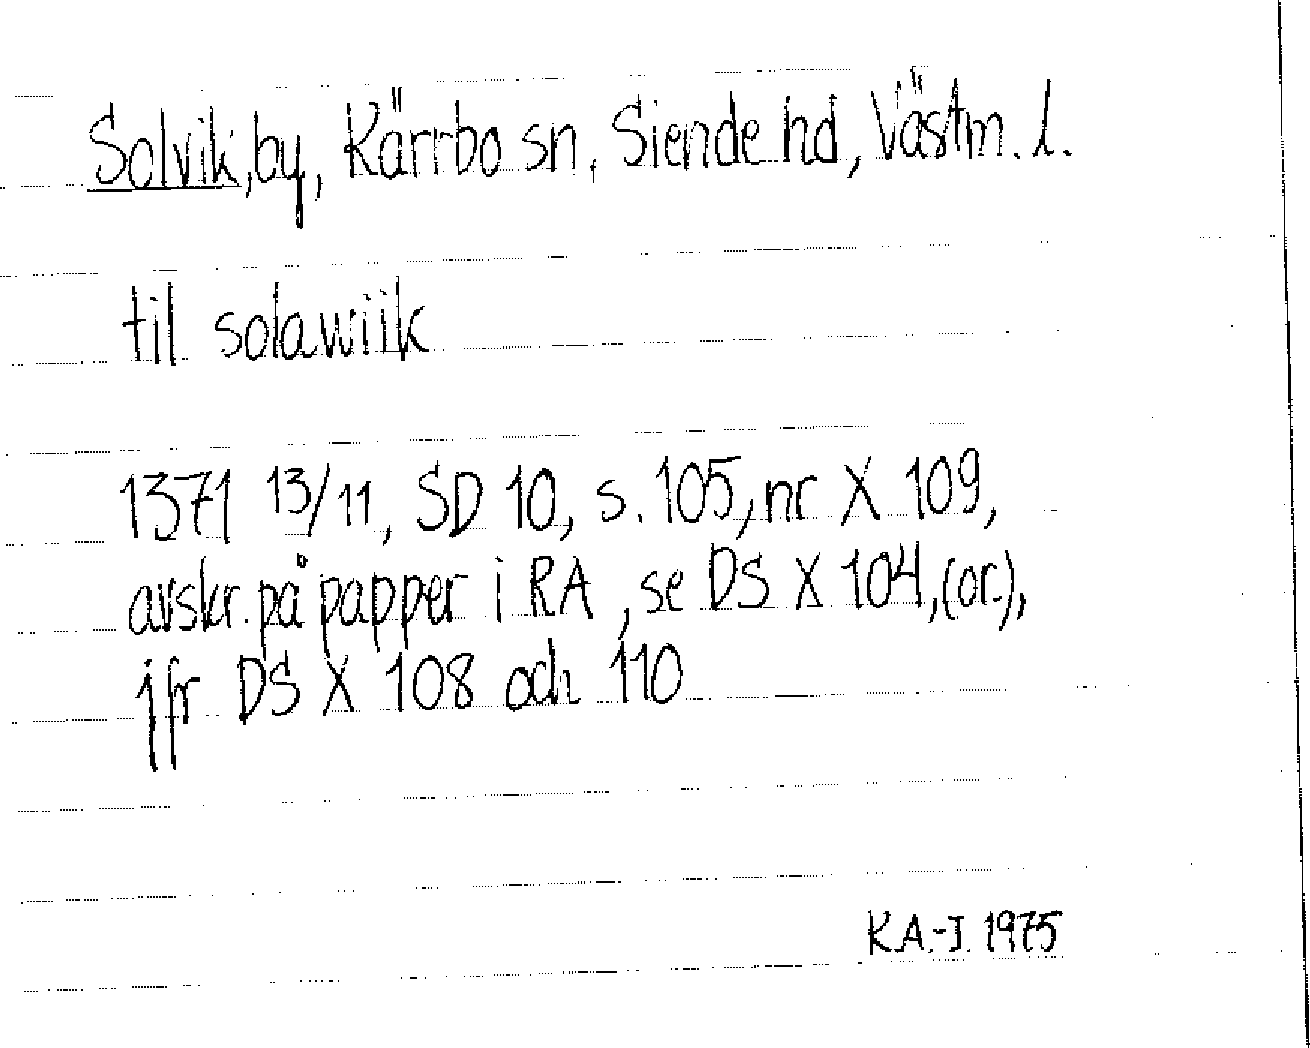 Solvik, by, Kärrbo sn, Siende hd, Västm. l.
til solawiik
1371 13/11, SD 10, s. 105, nr X 109,
avskr. på papper i RA, se DS X 104, (or.),
jfr DS X 108 och 110
K.A.-I. 1975